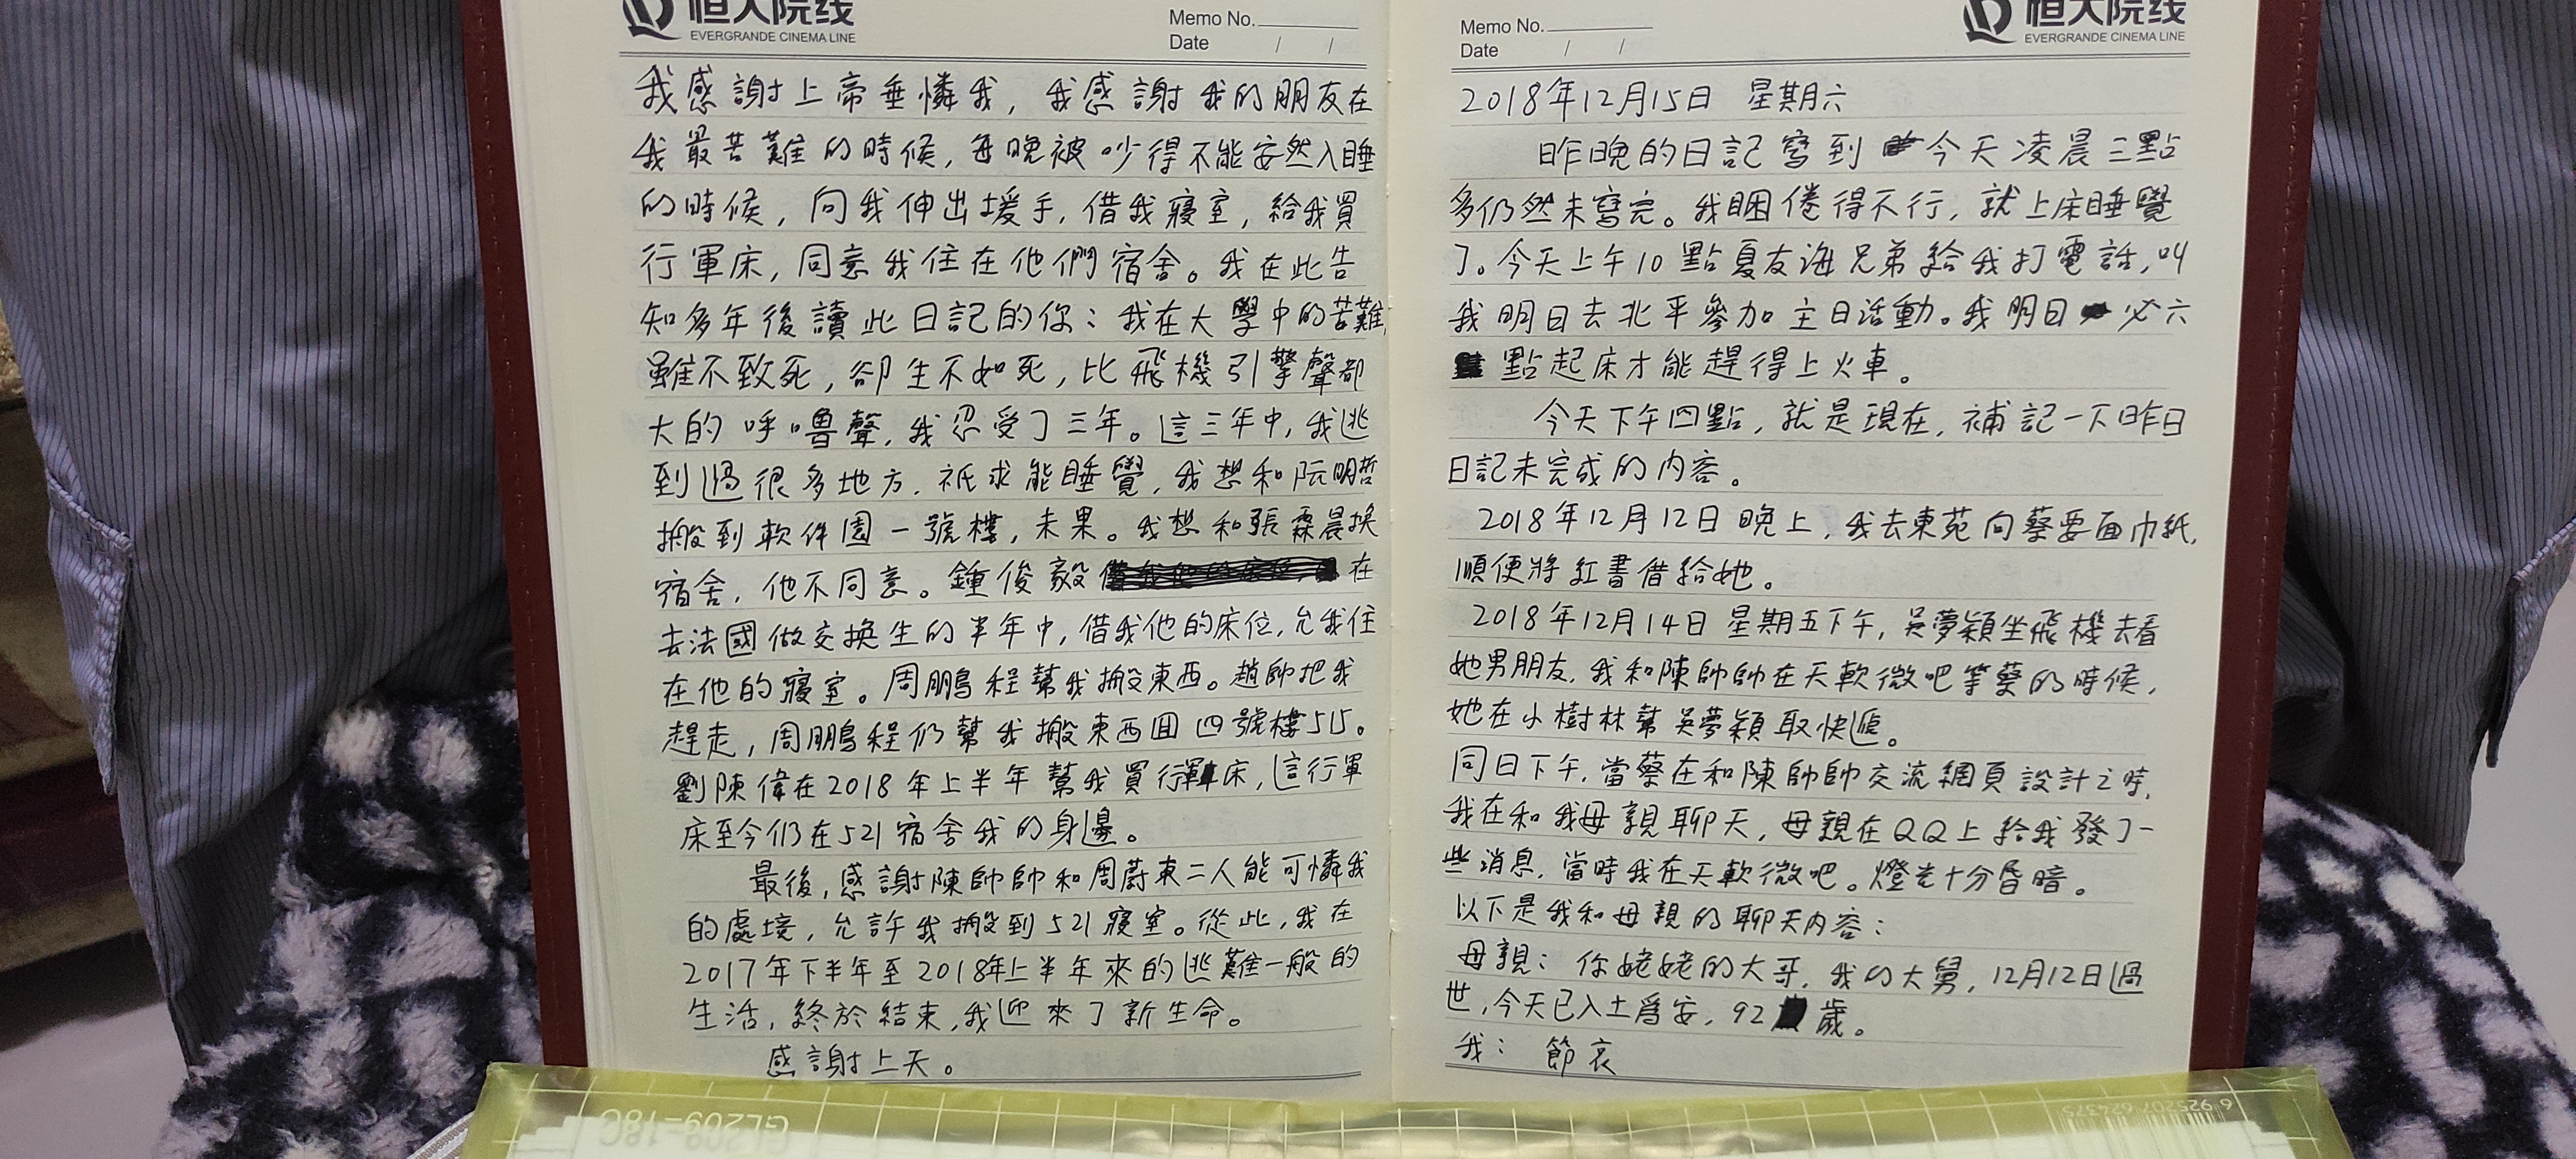 恒大院线
EVERGRANDE CINEMA LINE
Memo No.
Date / /
我感謝上帝垂憐我，我感謝我的朋友在
我最苦難的時候，每晚被吵得不能安然入睡
的時候，向我伸出援手，借我寢室，給我買
行軍床，同意我住在他們宿舍。我在此告
知多年後讀此日記的你：我在大學中的苦難，
雖不致死，卻生不如死，比飛機引擎聲都
大的呼嚕聲，我忍受了三年。這三年中，我逃
到過很多地方，祇求能睡覺，我想和阮明哲
搬到軟件園一號樓，未果。我想和張霖晨換
宿舍，他不同意。鍾俊毅在
去法國做交換生的半年中，借我他的床位，允我住
在他的寢室。周鵬程幫我搬東西。趙帥把我
趕走，周鵬程仍幫我搬東西回四號樓515。
劉陳偉在2018年上半年幫我買行軍床，這行軍
床至今仍在521宿舍我的身邊。
最後，感謝陳帥帥和周蔚東二人能可憐我
的處境，允許我搬到521寢室。從此，我在
2017年下半年至2018年上半年來的逃難一般的
生活，終於結束，我迎來了新生命。
感謝上天。
Memo No.
Date / /
恒大院线
EVERGRANDE CINEMA LINE
2018年12月15日 星期六
昨晚的日記寫到今天凌晨三點
多仍然未寫完。我睏倦得不行，就上床睡覺
了。今天上午10點夏友海兄弟給我打電話，叫
我明日去北平參加主日活動。我明日必六
點起床才能趕得上火車。
今天下午四點，就是現在，補記一下昨日
日記未完成的内容。
2018年12月12日晚上，我去東苑向蔡要面巾紙，
順便將紅書借給她。
2018年12月14日星期五下午，吳夢穎坐飛機去看
她男朋友，我和陳帥帥在天軟微吧等蔡的時候，
她在小樹林幫吳夢穎取快遞。
同日下午，當蔡在和陳帥帥交流網頁設計之時，
我在和我母親聊天，母親在QQ上給我發了一
些消息，當時我在天軟微吧。燈光十分昏暗。
以下是我和母親的聊天内容：
母親：你姥姥的大哥，我的大舅，12月12日過
世，今天已入土爲安，92歲。
我：節哀
GL209-18C
6 925207 624375